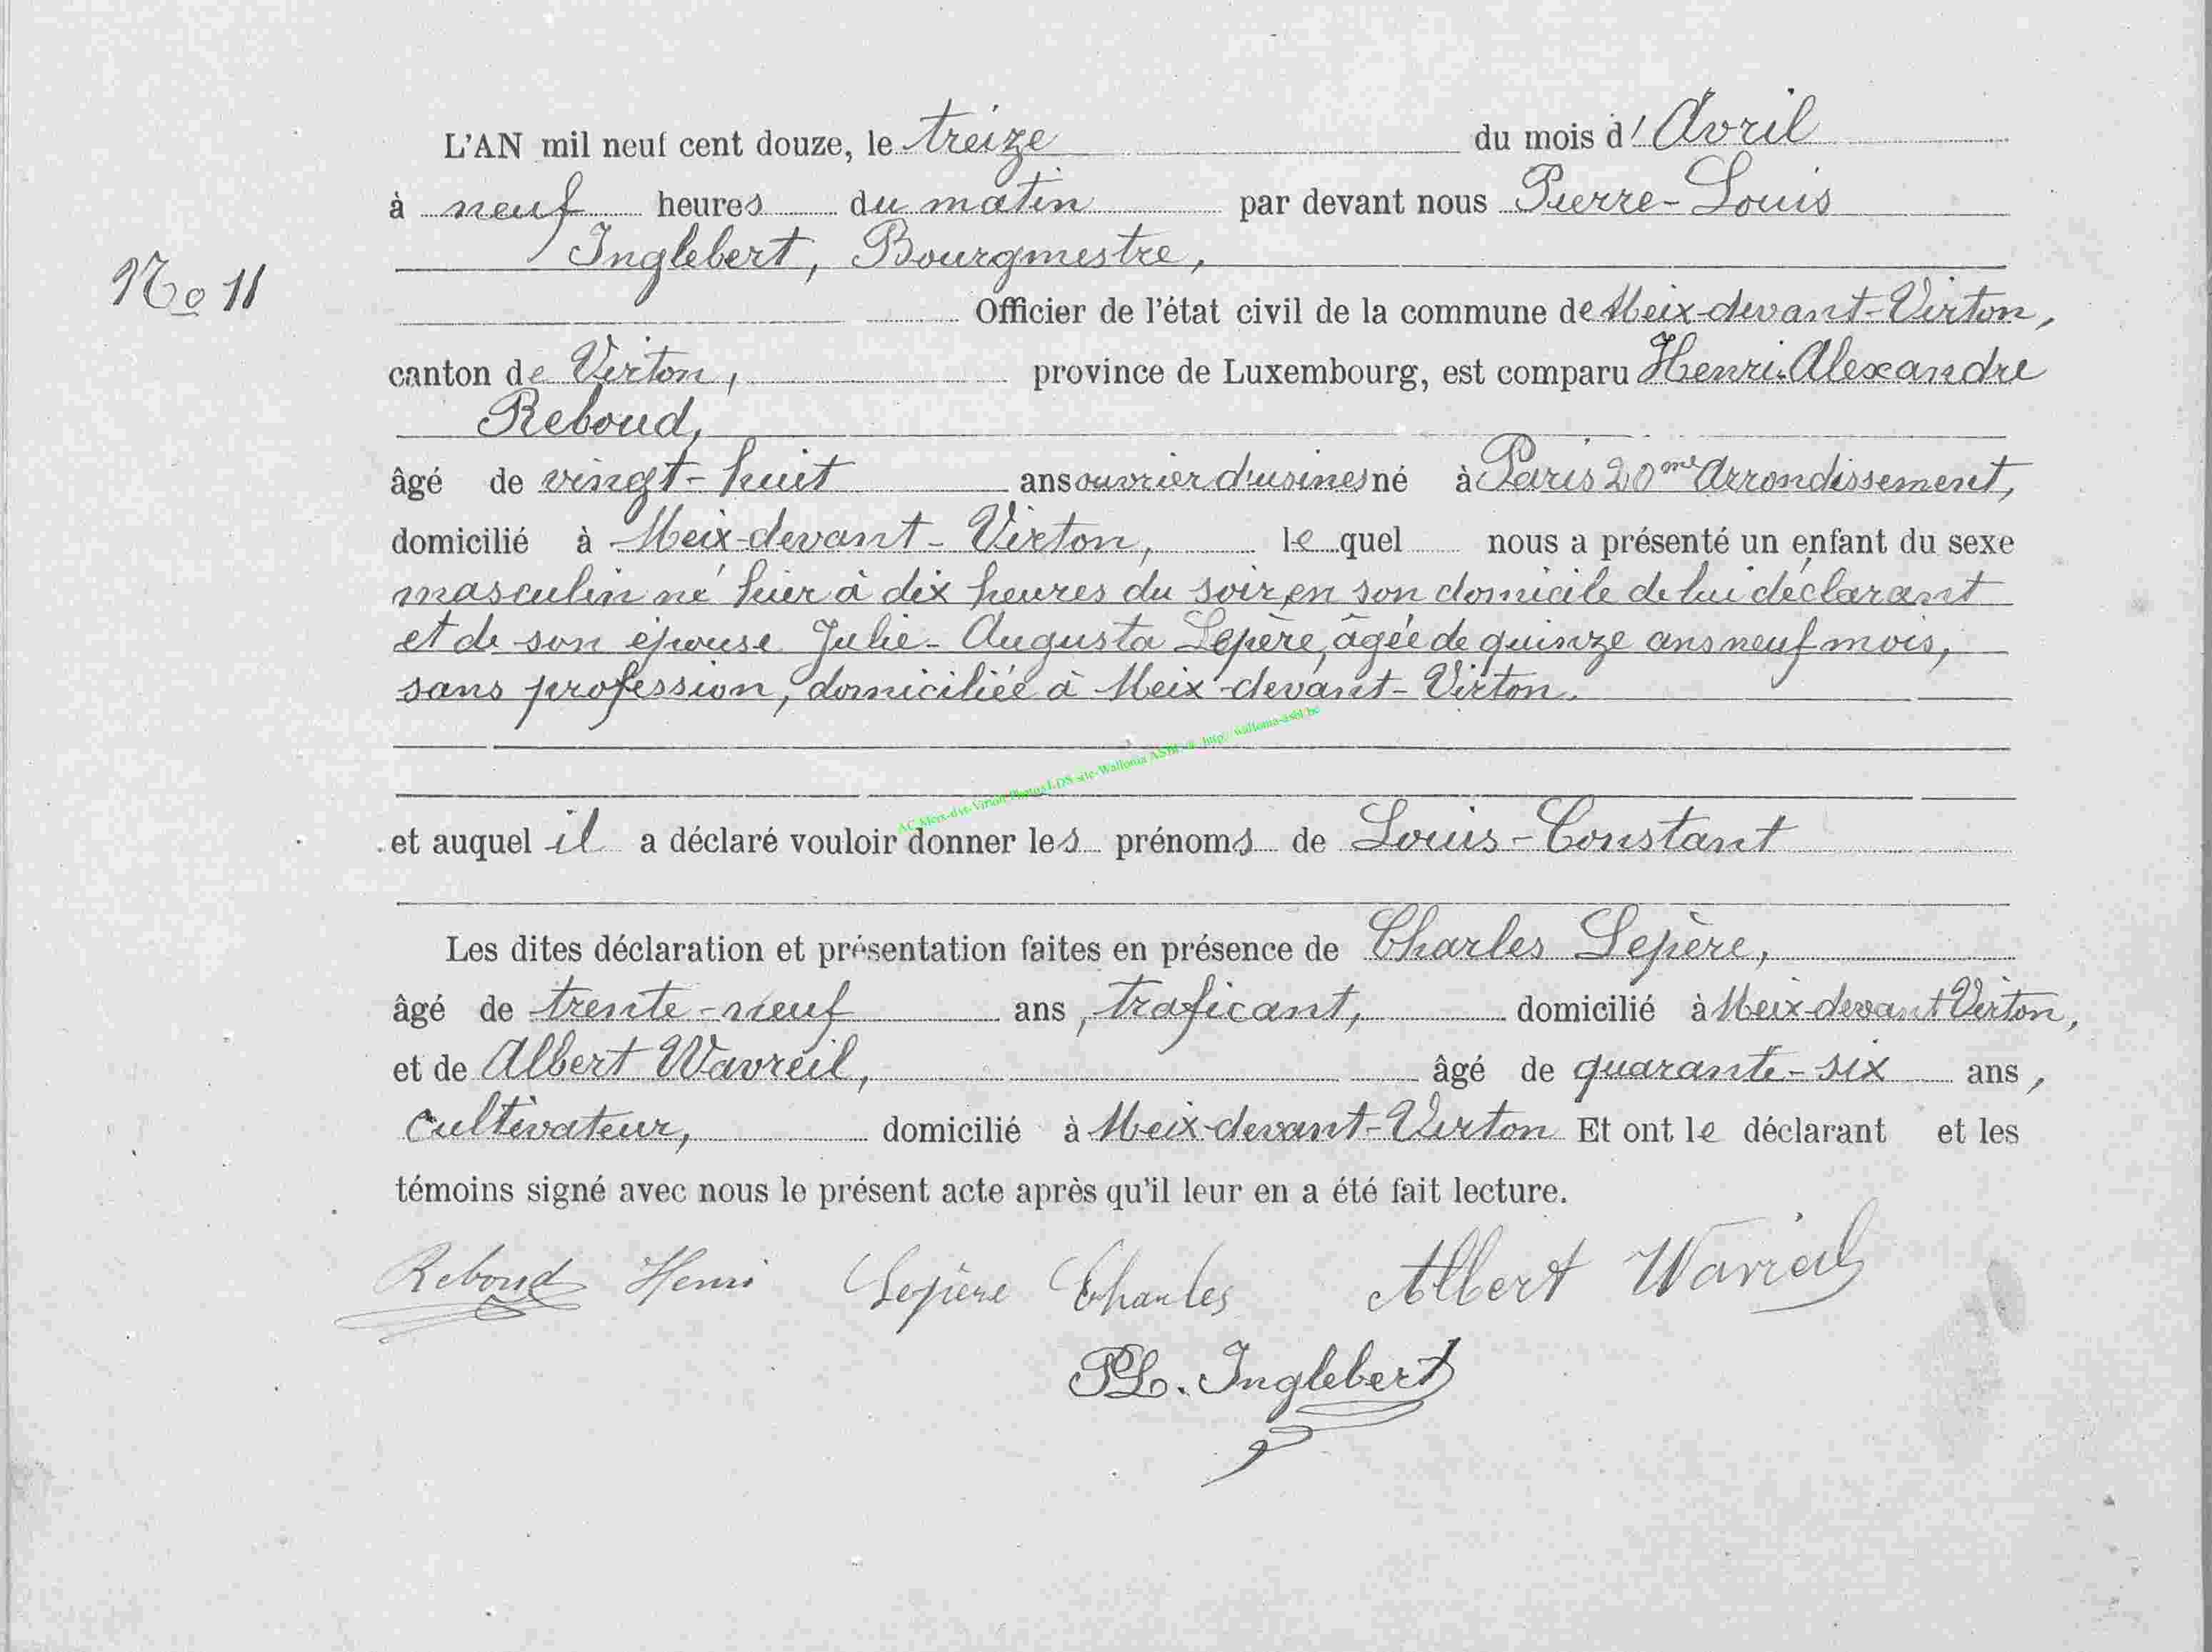 L'AN mil neuf cent douze, le treize du mois d'Avril
à neuf heures du matin par devant nous Pierre-Louis
Inglebert, Bourgmestre,
No 11
Officier de l'état civil de la commune de Meix-devant-Virton,
canton de Virton, province de Luxembourg, est comparu Henri-Alexandre
Reboud,
âgé de vingt-huit ans ouvrier d'usines né à Paris 20me Arrondissement,
domicilié à Meix-devant-Virton, le quel nous a présenté un enfant du sexe
masculin né hier à dix heures du soir, en son domicile de lui déclarant
et de son épouse Julie-Augusta Lepère, âgée de quinze ans neuf mois,
sans profession, domiciliée à Meix-devant-Virton.
AC Meix-dvt-Virton Photos LDS site-Wallonia ASBL @ http://wallonia-asbl.be
et auquel il a déclaré vouloir donner les prénoms de Louis-Constant
Les dites déclaration et présentation faites en présence de Charles Lepère,
âgé de trente-neuf ans, traficant, domicilié à Meix-devant Virton,
et de Albert Wavreil, âgé de quarante-six ans,
cultivateur, domicilié à Meix-devant-Virton Et ont le déclarant et les
témoins signé avec nous le présent acte après qu'il leur en a été fait lecture.
Reboud Henri Lepère Charles Albert Wavreil
PL. Inglebert